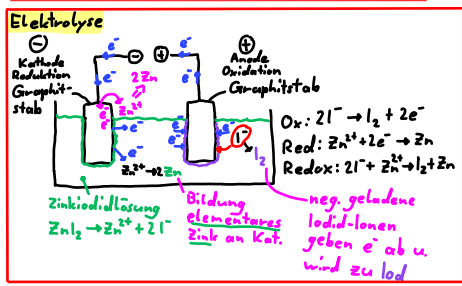 Elektrolyse
⊖
Kathode
Reduktion
Graphit-
stab
e⁻
e⁻
− +
e⁻
e⁻
⊕
Anode
Oxidation
Graphitstab
2Zn
Zn²⁺
e⁻
e⁻
e⁻
e⁻
e⁻
e⁻
e⁻
e⁻
e⁻
e⁻
I⁻
I₂
Zn²⁺→2Zn
Ox: 2I⁻ → I₂ + 2e⁻
Red: Zn²⁺+2e⁻ → Zn
Redox: 2I⁻+ Zn²⁺→I₂+Zn
Zinkiodidlösung
ZnI₂ → Zn²⁺ + 2I⁻
Bildung
elementares
Zink an Kat.
neg. geladene
Iodid-Ionen
geben e⁻ ab u.
wird zu Iod